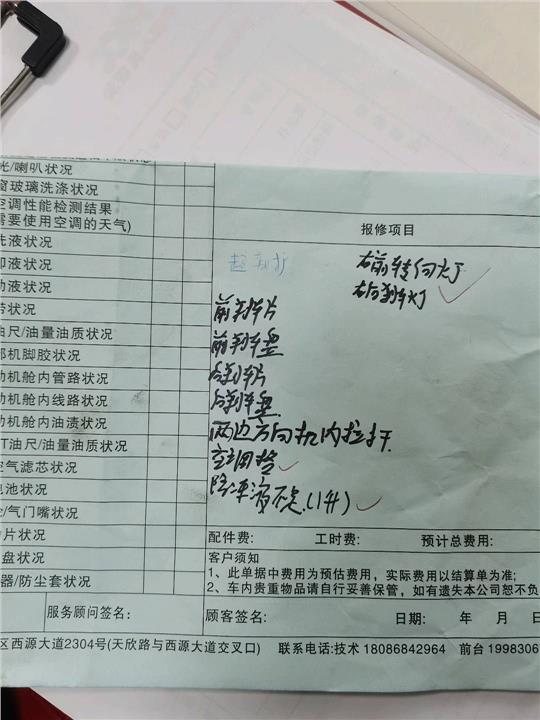 光/喇叭状况
窗玻璃洗涤状况
空调性能检测结果
需要使用空调的天气)
报修项目
洗液状况
却液状况
右前转向灯
动液状况
右后刹车灯
带状况
前刹车片
油尺/油量油质状况
前刹车盘
却机脚胶状况
后刹车片
动机舱内管路状况
后刹车盘
动机舱内线路状况
两边方向机内拉杆
动机舱内油渍状况
空调格
T油尺/油量油质状况
防冻液不亮(1升)
空气滤芯状况
电池状况
/气门嘴状况
配件费: 工时费: 预计总费用:
片状况
客户须知
盘状况
1、此单据中费用为预估费用，实际费用以结算单为准;
器/防尘套状况
2、车内贵重物品请自行妥善保管，如有遗失本公司恕不负
服务顾问签名: 顾客签名: 日期: 年 月 日
区西源大道2304号(天欣路与西源大道交叉口) 联系电话:技术 18086842964 前台 1998306